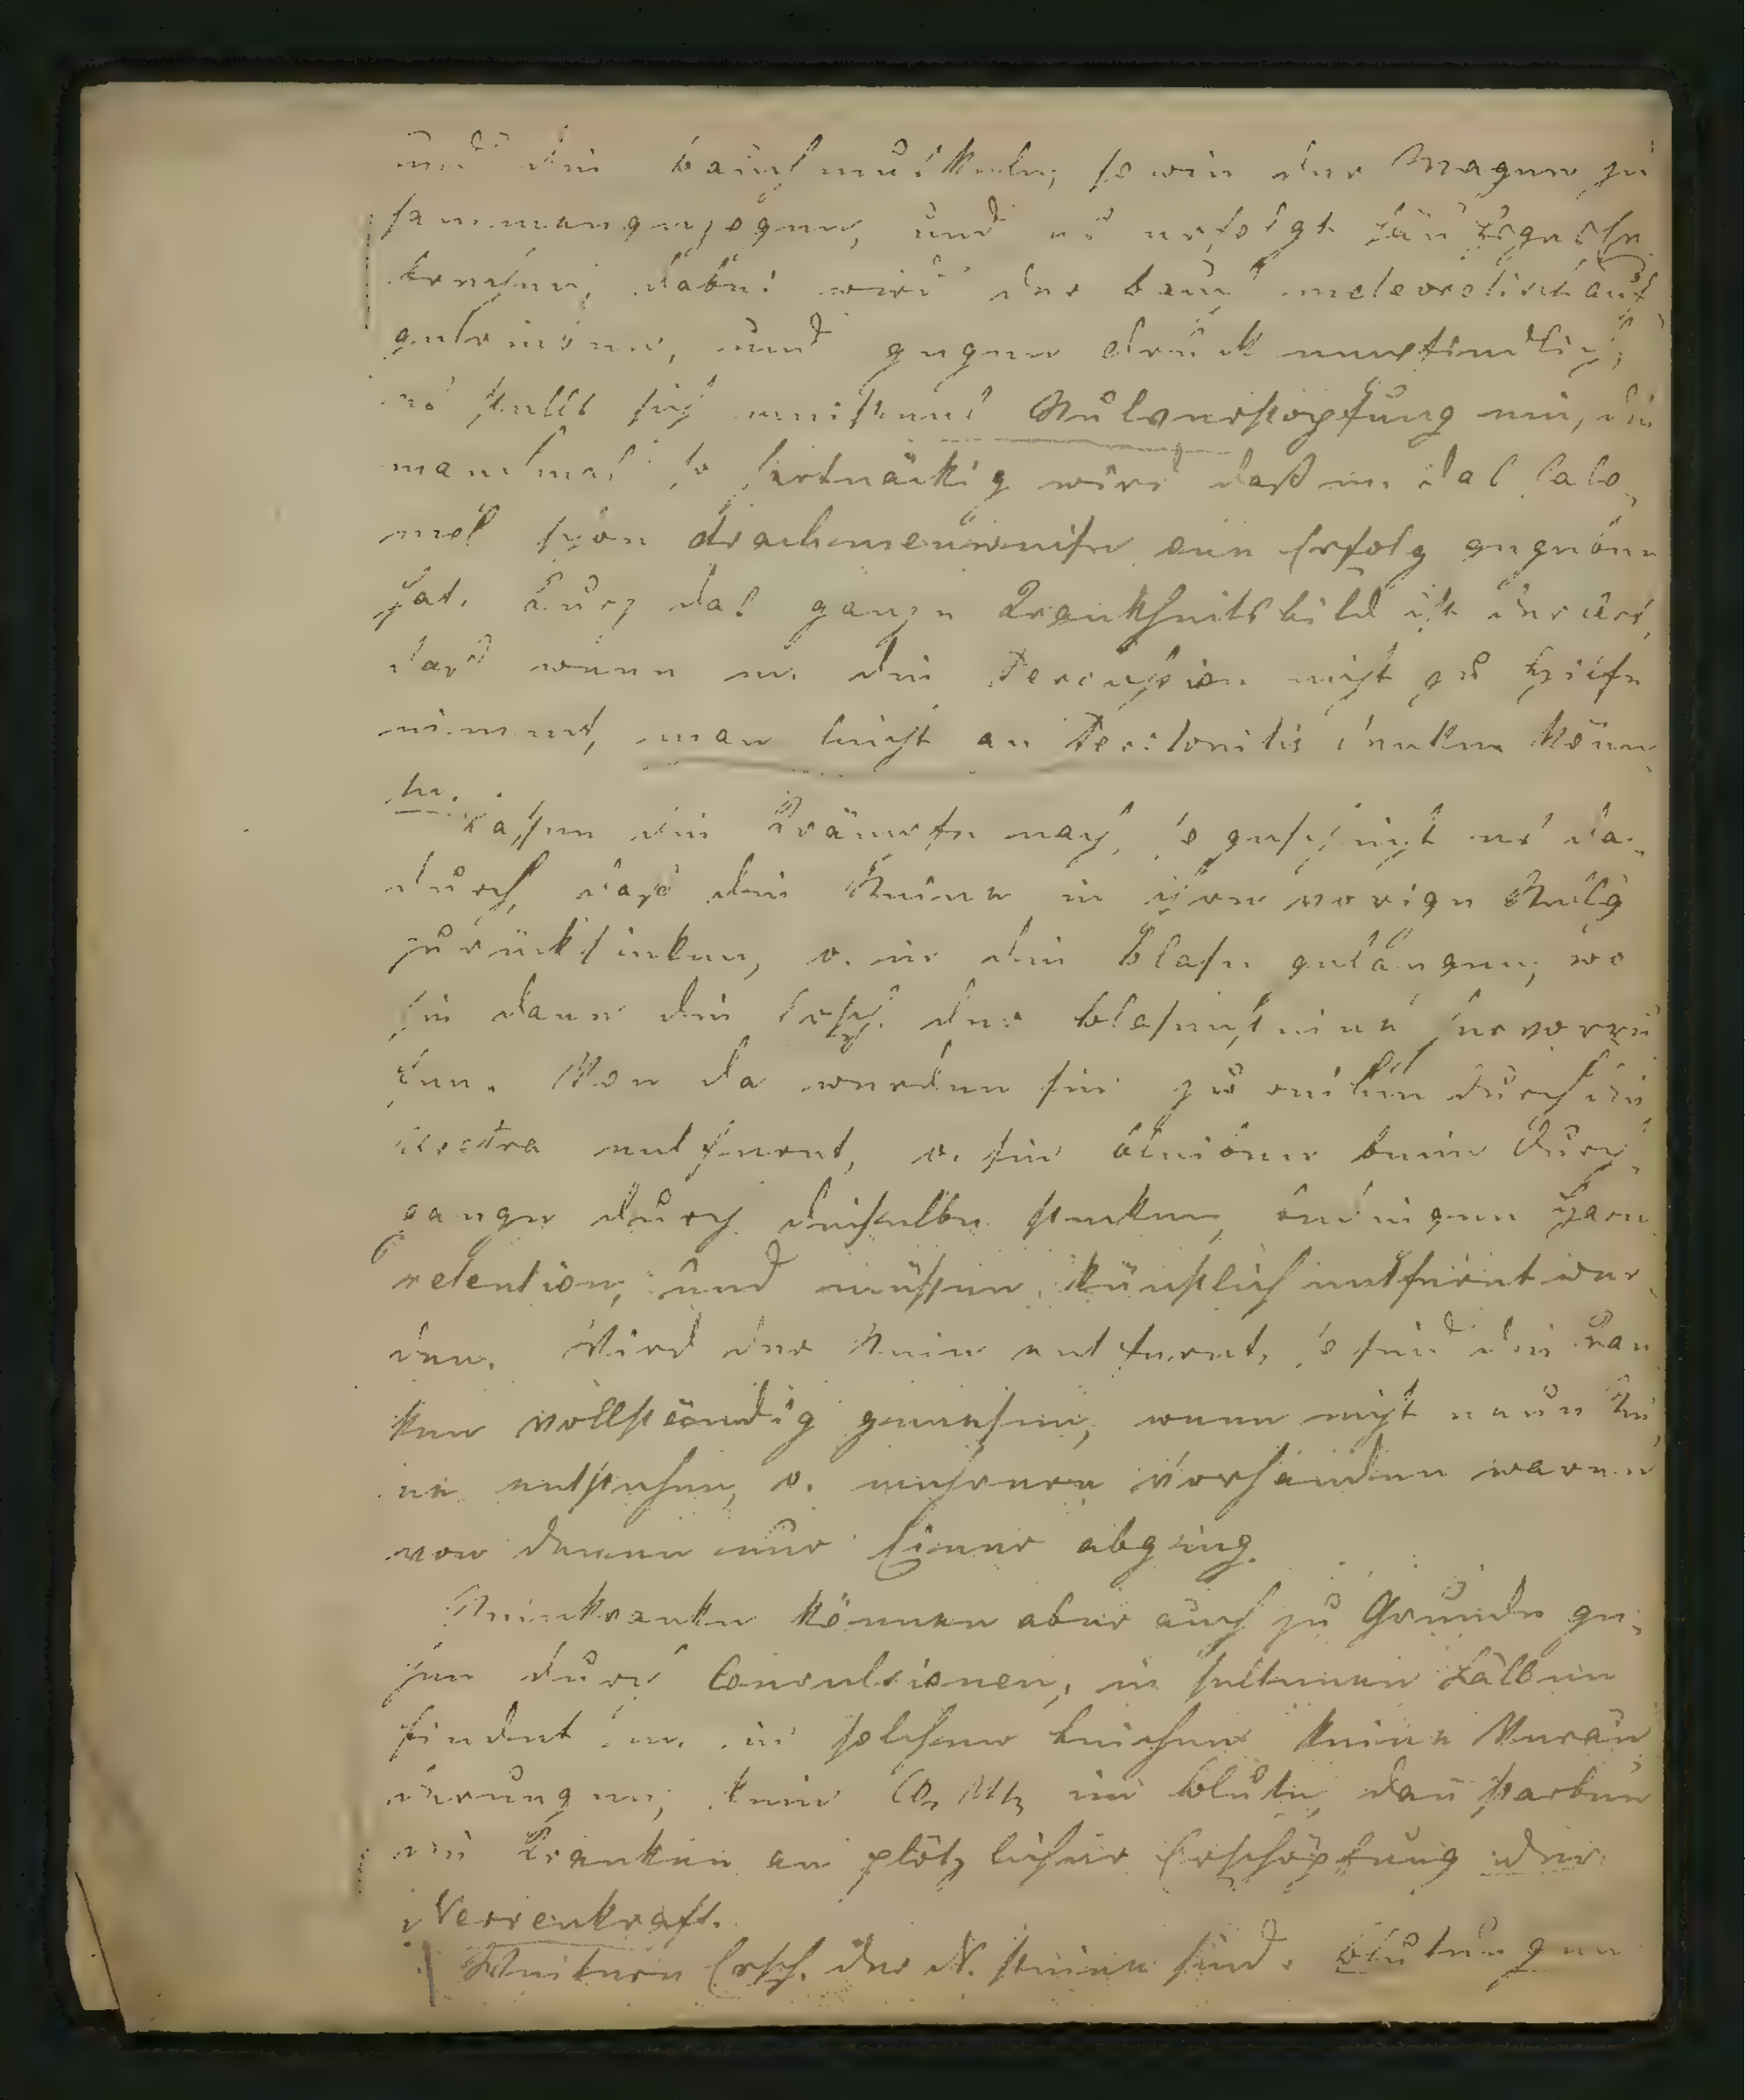 und die Bauchmuskeln, so wie der Magen zu
sammengezogen, und es erfolgt häufiges Er
brechen, dabei wird der Bauch meteoristisch auf
getrieben, und gegen Druck empfindlich;
es stellt sich meistens Stuhlverstopfung ein, die
manchmal so hartnäckig wird daß m. das Calo-
mel schon drachmenweise one Erfolg gegeben
hat. Kurz das ganze Krankheitsbild ist derart,
daß wenn m. die Percussion nicht zu Hilfe
nimmt, man leicht an Peritonitis denken könn-
te.
Lassen die Krämpfe nach, so geschieht es da-
durch, daß die Steine in ihre vorige
zurücksinken, o. in die Blase gelangen, wo
sie dann die Ersch. der Blasensteine hervorru
fen. Von da werden sie zuweilen durch die
Urethra entfernt, o. sie bleiben beim Durch-
gange durch dieselbe stecken, bedingen Harn
retention, und müssen künstlich entfernt wer-
den. Wird der Stein entfernt, so sind die Kran
ken vollständig genesen, wenn nicht neue Stei
ne entstehen, o. mehrere vorhanden waren
von denen nur Einer abging.
Steinkranke können aber auch zu Grunde ge-
hen durch Convulsionen, in seltenen Fällen
findet m. in solchen Leichen keine Verän
derungen, kein im Blute, dan starben
die Kranken an plötzlicher Erschöpfung der
Nervenkraft.
Weitere Ersch. der N. steine sind. Blutungen